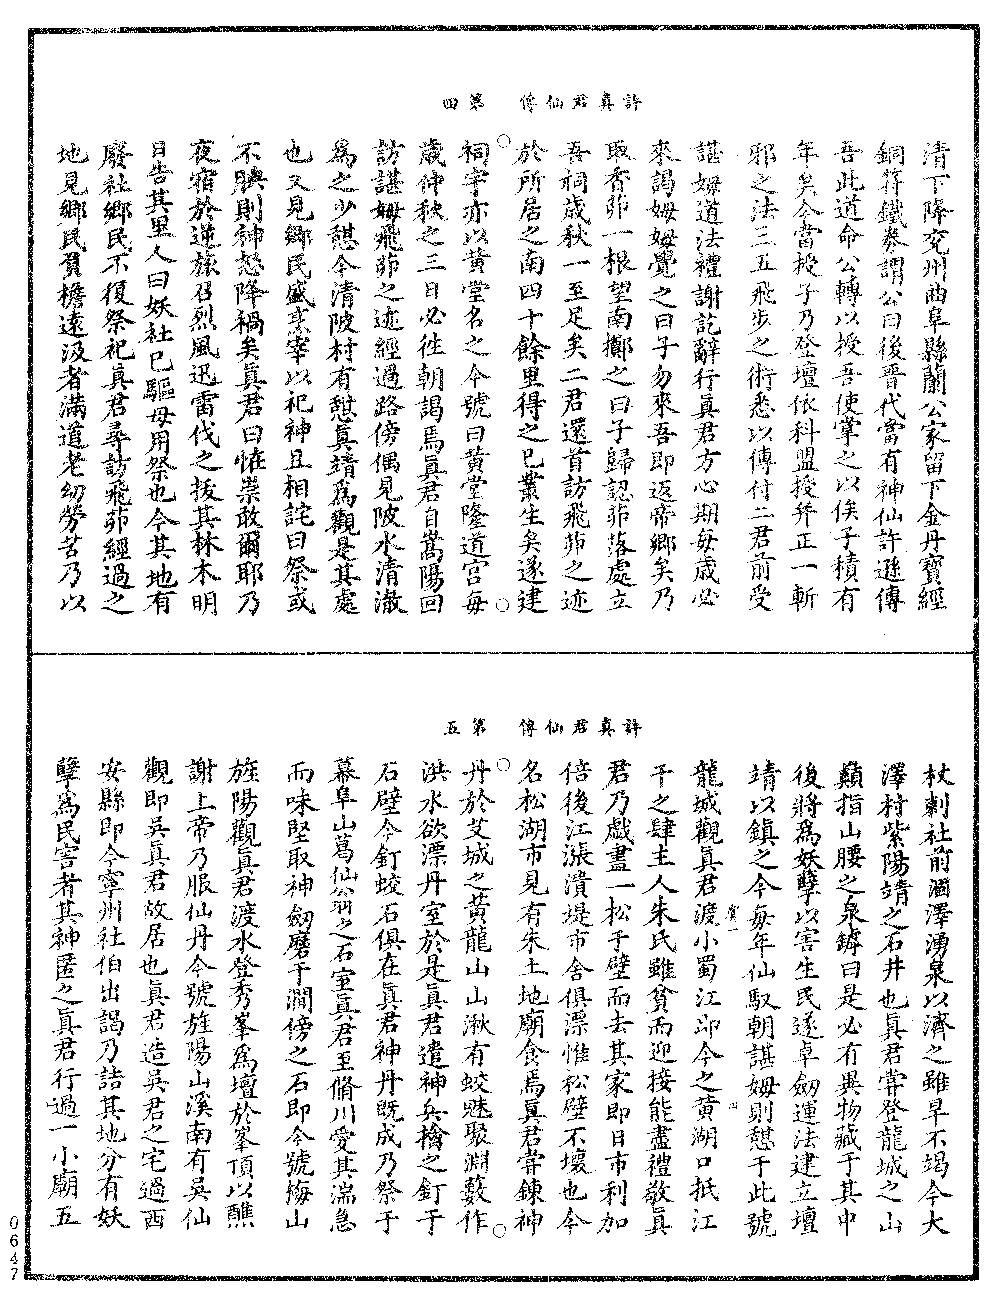 許真君仙傳　第四
清下降兖州曲阜縣蘭公家留下金丹寶經
銅符鐵券謂公曰後晉代當有神仙許遜傳
吾此道命公轉以授吾使掌之以俟子積有
年矣今當授子乃登壇依科盟授并正一斬
邪之法三五飛步之術悉以傳付二君前受
諶姆道法禮謝訖辭行真君方心期每歲必
來謁姆姆覺之曰子勿來吾即返帝鄉矣乃
取香茆一根望南擲之曰子歸認茆落處立
吾祠歲秋一至足矣二君還首訪飛茆之迹
於所居之南四十餘里得之已叢生矣遂建
祠宇亦以黃堂名之今號曰黃堂隆道宮每
歲仲秋之三日必往朝謁焉真君自嵩陽回
訪諶姆飛茆之迹經過路傍偶見陂水清澈
爲之少憩今清陂村有憩真靖爲觀是其處
也又見鄉民盛烹宰以祀神且相詫曰祭或
不腆則神怒降禍矣真君曰恠崇敢爾耶乃
夜宿於逆旅召烈風迅雷伐之拔其林木明
日告其里人曰妖社已驅毋用祭也今其地有
廢社鄉民不復祭祀真君尋訪飛茆經過之
地見鄉民負檐遠汲者滿道老幼勞苦乃以
許真君仙傳　第五
杖刺社前涸澤湧泉以濟之雖旱不竭今大
澤村紫陽靖之石井也真君嘗登龍城之山
巔指山腰之泉罅曰是必有異物藏于其中
後將爲妖孽以害生民遂卓劒運法建立壇
靖以鎮之今每年仙馭朝諶姆則憩于此號
龍城觀真君渡小蜀江即今之黃湖口抵江
干之肆主人朱氏雖貧而迎接能盡禮敬真
君乃戲畫一松于壁而去其家即日市利加
倍後江漲潰堤市舍俱漂惟松壁不壞也今
名松湖市見有朱土地廟食焉真君嘗鍊神
丹於艾城之黃龍山山湫有蛟魅聚淵藪作
洪水欲漂丹室於是真君遣神兵擒之釘于
石壁今釘蛟石俱在真君神丹既成乃祭于
幕阜山葛仙公之石室真君至脩川愛其湍急
而味堅取神劒磨于澗傍之石即今號梅山
旌陽觀真君渡水登秀峯爲壇於峯頂以醮
謝上帝乃服仙丹今號旌陽山溪南有吳仙
觀即吳真君故居也真君造吳君之宅過西
安縣即今寧州社伯出謁乃詰其地分有妖
孽爲民害者其神匿之真君行過一小廟五
0647